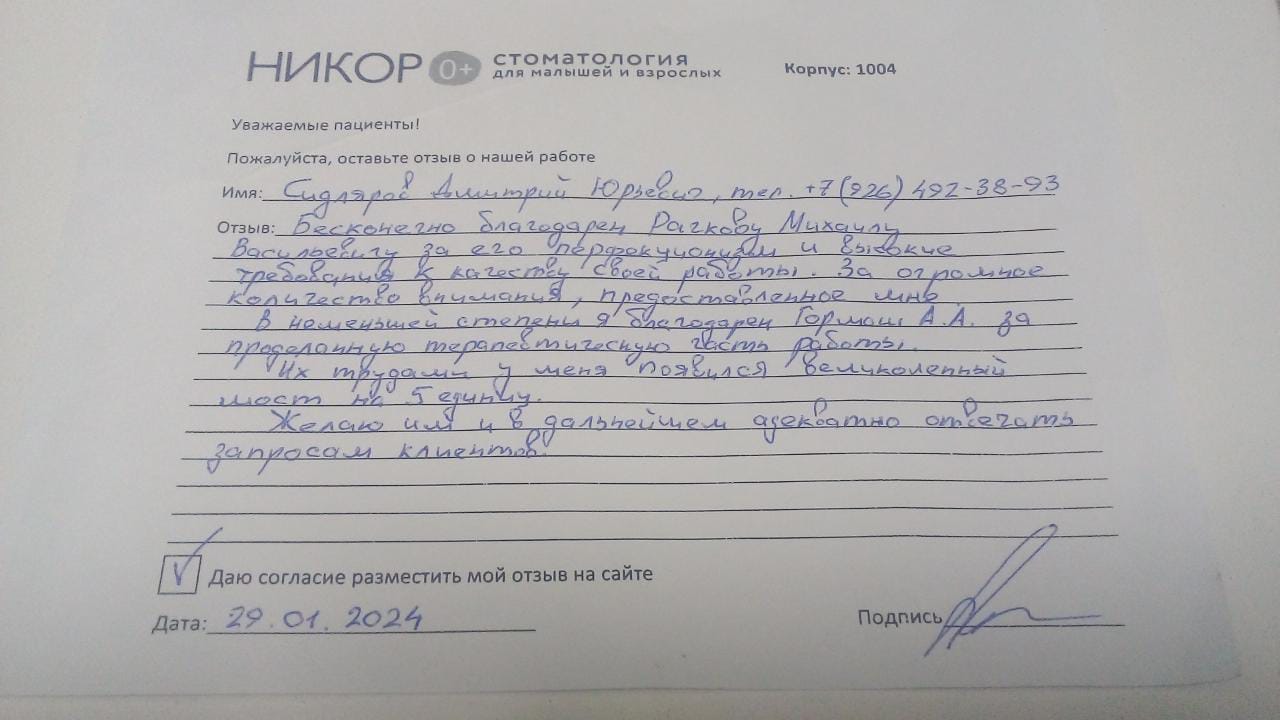 НИКОР 0+ СТОМАТОЛОГИЯ
ДЛЯ МАЛЫШЕЙ И ВЗРОСЛЫХ
Корпус: 1004
Уважаемые пациенты!
Пожалуйста, оставьте отзыв о нашей работе
Имя: Сидляров Дмитрий Юрьевич, тел. +7(926) 492-38-93
Отзыв: Бесконечно благодарен Рачкову Михаилу
Васильевичу за его перфекционизм и высокие
требования к качеству своей работы. За огромное
количество внимания, предоставленное мне.
В неменьшей степени я благодарен Гормаш А.А. за
проделанную терапевтическую часть работы.
Их трудами у меня появился великолепный
мост на 5 единиц.
Желаю им и в дальнейшем адекватно отвечать
запросам клиентов.
Даю согласие разместить мой отзыв на сайте
Дата: 29.01.2024
Подпись